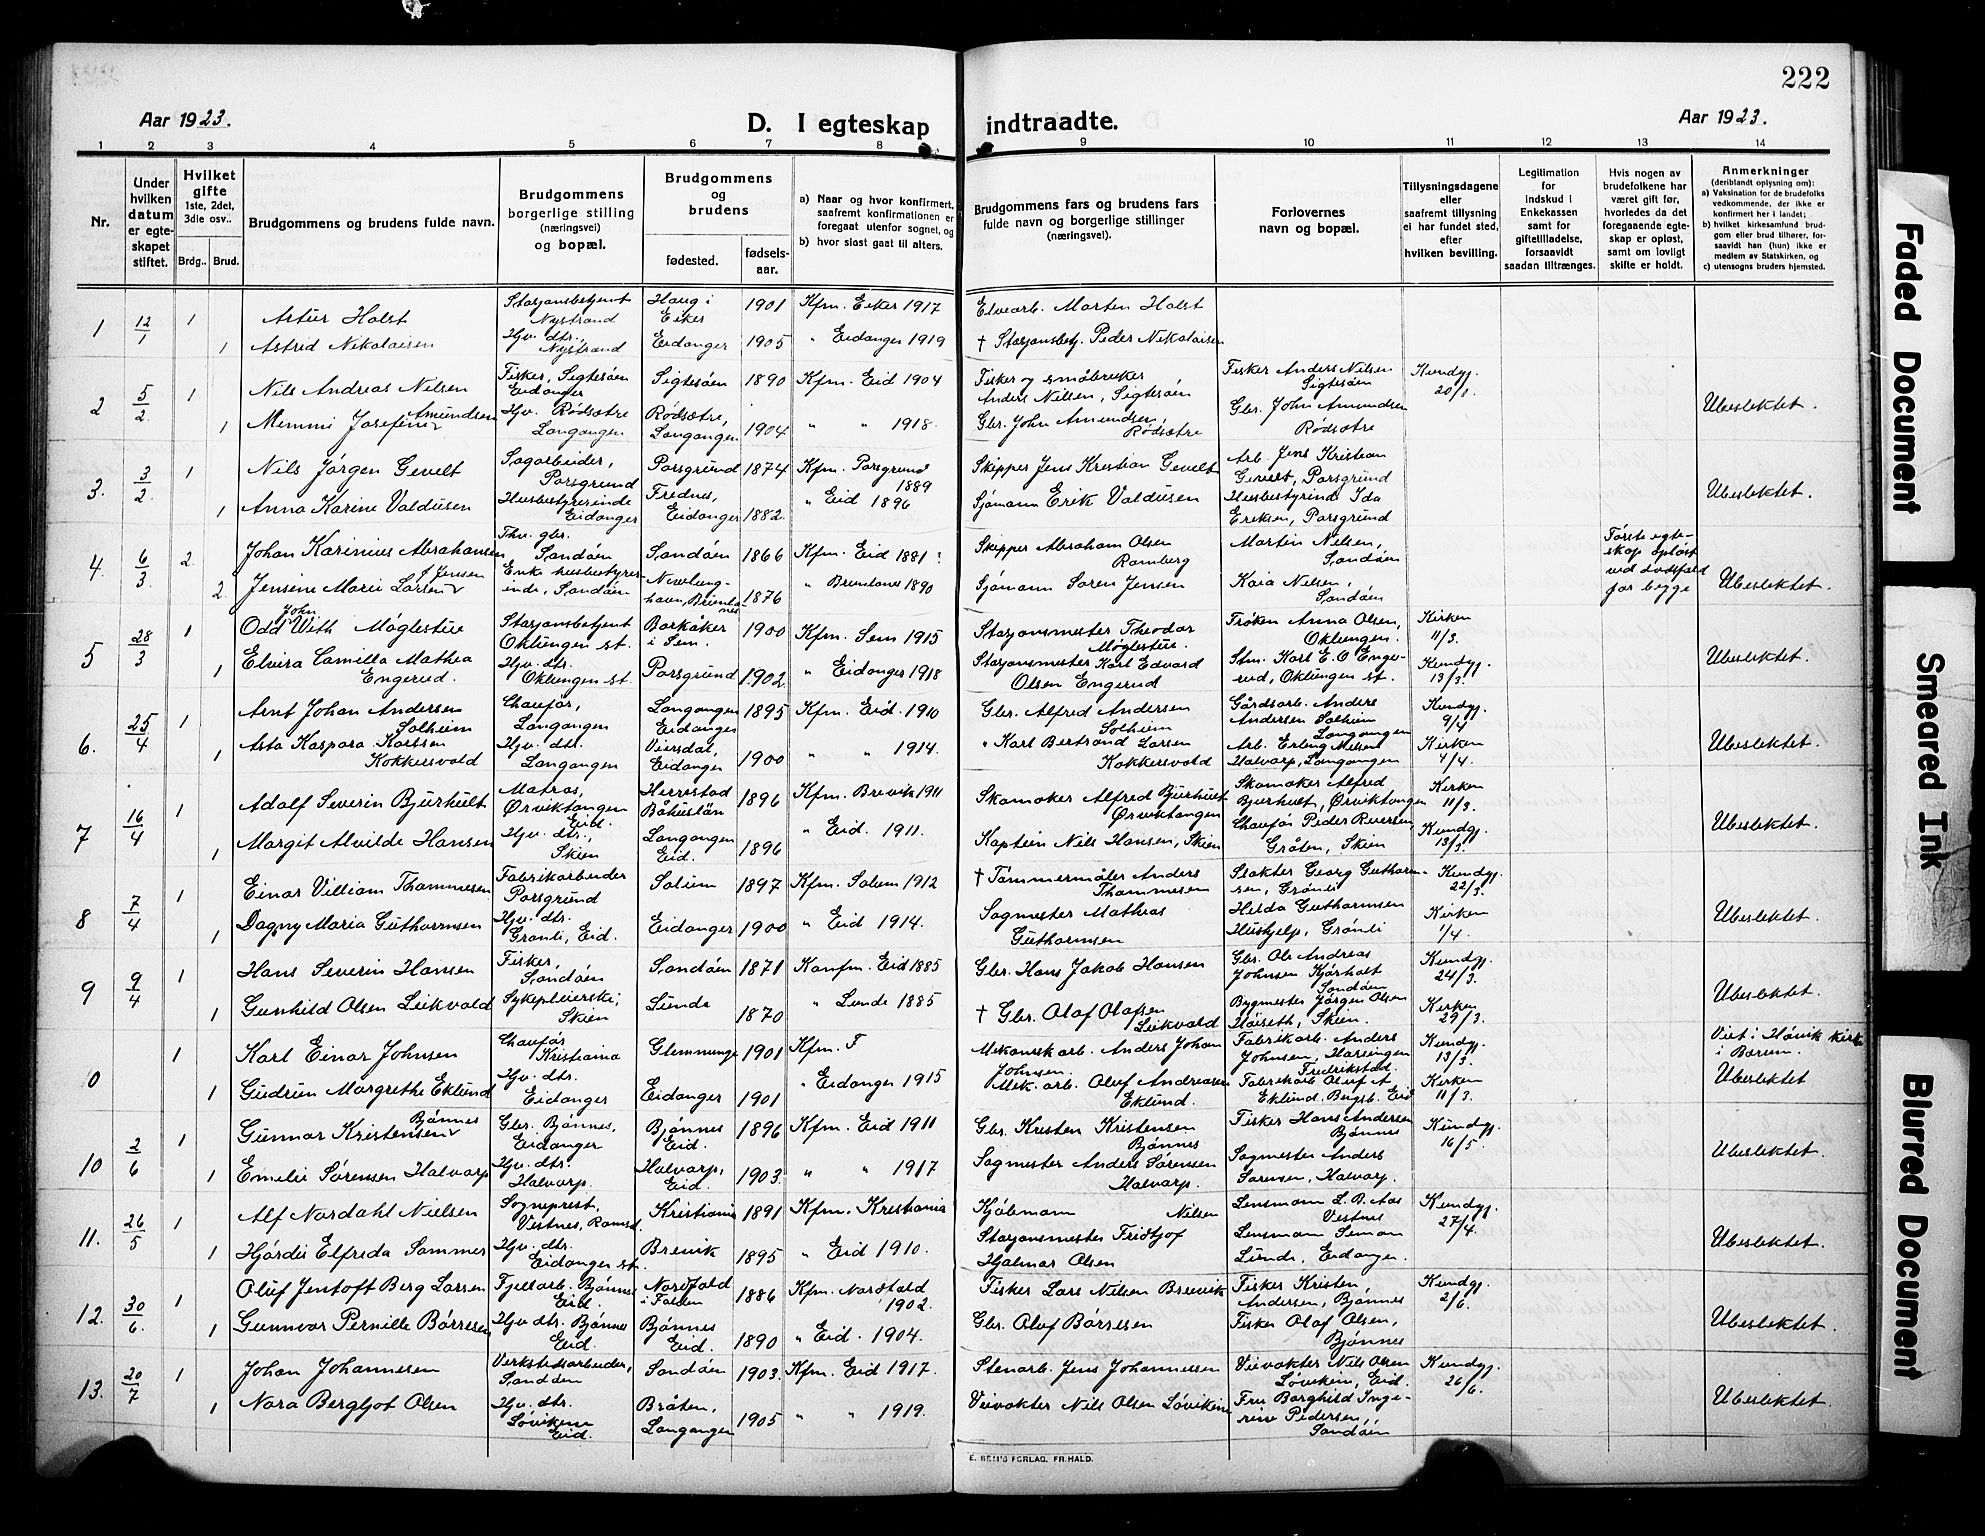 222
Aar 1923.
D. I egteskap indtraadte.
Aar 1923.
1 2 3 4 5 6 7 8 9 10 11 12 13 14
Nr.
Under hvilken datum er egteskapet stiftet.
Hvilket gifte 1ste, 2det, 3die osv..
Brdg.. Brud.
Brudgommens og brudens fulde navn.
Brudgommens borgerlige stilling (næringsvei) og bopæl.
Brudgommens og brudens
fødested.
fødselsaar.
a) Naar og hvor konfirmert, saafremt konfirmationen er foregaat utenfor sognet, og
b) hvor sidst gaat til alters.
Brudgommens fars og brudens fars fulde navn og borgerlige stillinger (næringsvei).
Forlovernes navn og bopæl.
Tillysningsdagene eller saafremt tillysning ei har fundet sted, efter hvilken bevilling.
Legitimation for indskud i Enkekassen samt for giftetilladelse, forsaavidt saadan tiltrænges.
Hvis nogen av brudefolkene har været gift før, hvorledes da det foregaaende egteskap er opløst, samt om lovligt skifte er holdt.
Anmerkninger (deriblandt oplysning om): a) Vaksination for de brudefolks vedkommende, der ikke er konfirmert her i landet; b) hvilket kirkesamfund brudgom eller brud tilhører, forsaavidt han (hun) ikke er medlem av Statskirken, og c) utensogns bruders hjemsted.
1 12/1 1 Artur Holst Stasjonsbetjent Nystrand Haug i Eiker 1901 Kfm. Eiker 1917 Elvearb. Morten Holst
1 Astrid Nikolaisen Hjv. dtr., Nystrand Eidanger 1905 " Eidanger 1919 † Stasjonsbetj. Peder Nikolaisen
2 5/2 1 Nils Andreas Nilsen Fisker, Sigtesøen Eidanger Sigtesøen 1890 Kfm. Eid 1904 Fisker og småbruker Anders Nilsen, Sigtesøen Fisker Anders Nilsen Sigtesøen Kundgj. 20/1
1 Memmi Josefine Amundsen Hjv. Rødsætre Langangen Rødsætre, Langangen 1904 " " 1918. Gbr. John Amundsen, Rødsætre Gbr. John Amundsen Rødsætre Ubeslektet.
3. 3/2 1 Nils Jørgen Gevelt Sagarbeider, Porsgrund Porsgrund 1874 Kfm. Porsgrund 1889 Skipper Jens Kristian Gevelt Arb. Jens Kristian Gevelt, Porsgrund
1 Anna Karine Valdusen Husbestyrerinde Eidanger Frednes, Eidanger 1882. " Eid 1896 Sjømann Erik Valdusen Husbestyrinde Ida Eriksen, Porsgrund Ubeslektet.
4. 6/3 2. Johan Karinius Abrahamsen Thv. gbr. Sandøen Sandøen 1866 Kfm. Eid 1881? Skipper Abraham Olsen Ramberg Martin Nilsen, Sandøen Første egteskap opløst ved dødsfald for begge
2. Jensine Marie Larsen f Jensen Enke husbestyrerinde, Sandøen Nevlunghavn, Brunlanes 1876 " Brunlanes 1890 Sjømann Søren Jensen Kaia Nilsen, Sandøen Ubeslektet.
5 28/3 1 Odd John With Møglestue Stasjonsbetjent Oklungen st. Barkåker i Sem. 1900 Kfm. Sem 1915 Stasjonsmester Theodor Møglestue. Frøken Anna Olsen, Oklungen. Kirken 11/3.
1 Elvira Camilla Mathea Engerud. Hjv. dtr. Oklungen st. Porsgrund 1902. " Eidanger 1918 Stasjonsmester Karl Edvard Olsen Engerud Stm. Karl E. O Engerud, Oklungen st. Kundgj. 13/3. Ubeslektet.
6. 25/4 1 Arnt Johan Andersen Solheim Chaufør, Langangen Langangen Eidanger 1895 Kfm. Eid. 1910 Gbr. Alfred Andersen Solheim Gårdsarb. Anders Andersen Solheim Langangen Kundgj. 9/4
1 Asta Kaspara Karlsen Kokkersvold Hjv. dtr. Langangen Viersdal, Eidanger 1900 " " 1914. " Karl Bertrand Larsen Kokkersvold Arb. Erling Nilsen Halvarp, Langangen Kirken 4/4. Ubeslektet.
7 16/4 1 Adolf Severin Bjurhult Matros, Ørviktangen Eid. Herrestad Båhuslän 1896 Kfm. Brevik 1911 Skomaker Alfred Bjurhult Ørviktangen Skomaker Alfred Bjurhult, Ørviktangen Kirken 11/3.
1 Margit Alvilde Hansen Hjv. dtr. Skien Langangen Eid. 1896 " Eid. 1911. Kaptein Nils Hansen, Skien Chaufør Peder Iversen, Gråten, Skien Kundgj. 13/3. Ubeslektet.
8 7/4 1 Einar Villiam Thommesen Fabrikarbeider Porsgrund Solum 1897 Kfm. Solum 1912 † Tømmermåler Anders Thommesen Stokter Georg Guthormsen, Grønli Kundgj. 22/3.
1 Dagny Maria Guthormsen Hjv. dtr. Grønli, Eid. Eidanger 1900 " Eid 1914. Sagmester Mathias Guthormsen Helda Guthormsen Hushjelp, Grønli Kirken 1/4. Ubeslektet.
9 9/4 1 Hans Severin Hansen Fisker, Sandøen Sandøen 1871 Konfm. Eid 1885 Gbr. Hans Jakob Hansen Gbr. Ole Andreas Johnsen Kjørholt Sandøen Kundgj. 24/3.
1 Gunhild Olsen Leikvold Sykepleierske, Skien Lunde 1870 " Lunde 1885 † Gbr. Olaf Olafsen Leikvold Bygmester Jørgen Olsen Høiseth, Skien. Kirken 29/3. Ubeslektet.
0 1 Karl Einar Johnsen Chaufør Kristiania Glemminge 1901 Kfm. F Mekanisk arb. Anders Johan Johnsen. Fabrikarb. Anders Johnsen, Fredrikstad. Kundgj. 13/3. Viet i Høvik kirke i Bærum.
1 Gudrun Margrethe Eklund Hjv. dtr. Eidanger Eidanger 1901 " Eidanger 1915 Mek. arb. Oluf Andreassen Eklund. Fabrikarb. Oluf A Eklund. Bugsb. Eid Kirken 11/3. Ubeslektet
10 2/6 1 Gunnar Kristensen Bjønnes Gbr. Bjønnes, Eidanger Bjønnes Eid. 1896 Kfm. Eid 1911 Gbr. Kristen Kristensen Bjønnes Fisker Hans Andersen Bjønnes Kundgj. 16/5.
1 Emelie Sørensen Halvarp Hjv. dtr. Halvarp. Halvarp, Eid. 1903. " " 1917 Sagmester Anders Sørensen Halvarp. Sagmester Anders Sørensen, Halvarp. Ubeslektet.
11. 26/5 1 Alf Nordahl Nielsen Sogneprest, Vestnes, Romsd. Kristiania 1891 Kfm. Kristiania Kjøbmann Nilsen Lensmann L. B. Aas Vestnes Kundgj. 27/4.
1 Hjørdis Elfreda Sommer Hjv. dtr. Eidanger st. Brevik 1895 " Eid 1910. Stasjonsmester Fridtjof Hjalmar Olsen Lensmann Simon Lunde, Eidanger. Ubeslektet.
12. 30/6 1 Oluf Jentoft Berg Larsen Fjellarb. Bjønnes Eid. Nordfold i Folden 1886 Kfm. Nordfold 1902. Fisker Lars Nilsen Brevik Fisker Kristen Andersen, Bjønnes Kundgj. 2/6.
1 Gunnvor Pernille Børresen Hjv dtr. Bjønnes Eid. Bjønnes Eid. 1890 " Eid. 1904. Gbr. Oluf Børresen Fisker Olaf Olsen, Bjønnes Ubeslektet.
13. 20/7 1 Johan Johannesen Verkstedsarbeider, Sandøen Sandøen 1903. Kfm. Eid 1917. Stenarb. Jens Johannessen Veivokter Nils Olsen Løvikein, Eid. Kundgj. 26/6.
1 Nora Bergljot Olsen Hjv. dtr. Løvikein Eid. Bråten, Langangen 1905 " " 1919. Veivokter Nils Olsen Løvikein Fru Borghild Ingerine Pedersen, Sandøen Ubeslektet.
E. SEM'S FORLAG, FR.HALD.
Faded Document
Smeared Ink
Blurred Document